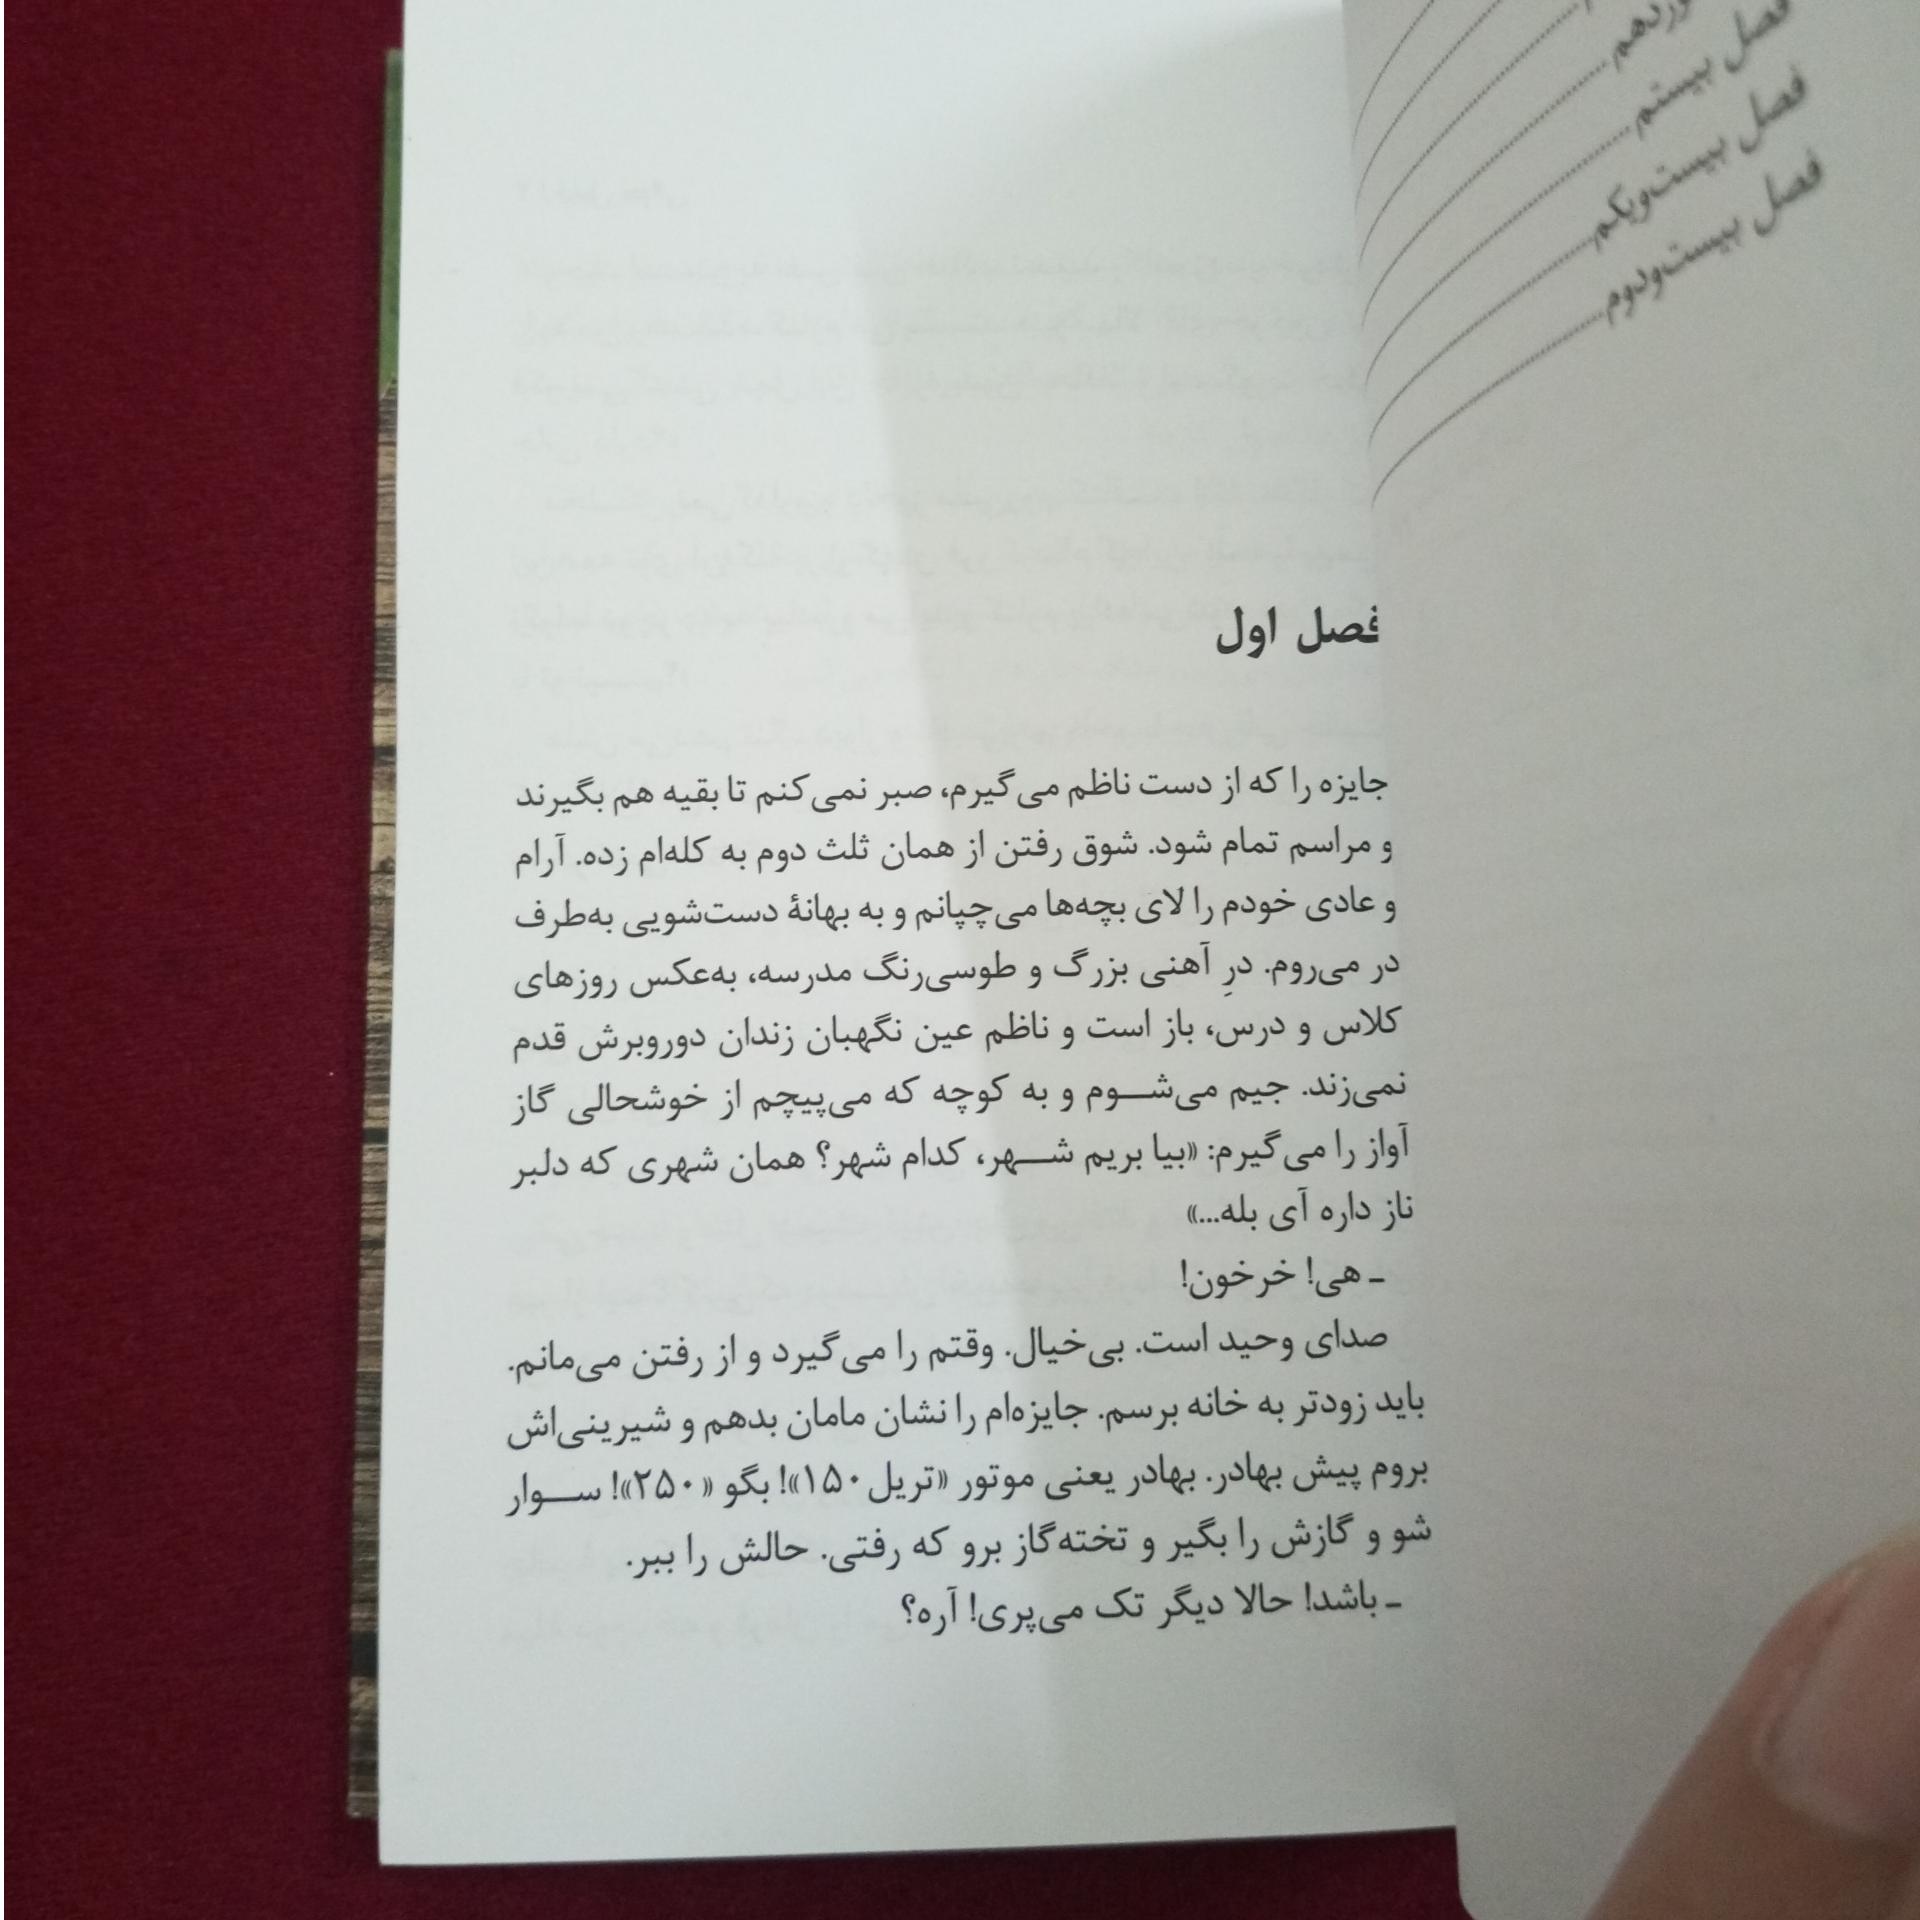 فصل بیستم
فصل بیست‌ویکم
فصل بیست‌ودوم
فصل اول
جایزه را که از دست ناظم می‌گیرم، صبر نمی‌کنم تا بقیه هم بگیرند
و مراسم تمام شود. شوق رفتن از همان ثلث دوم به کله‌ام زده. آرام
و عادی خودم را لای بچه‌ها می‌چپانم و به بهانهٔ دست‌شویی به‌طرف
در می‌روم. درِ آهنی بزرگ و طوسی‌رنگ مدرسه، به‌عکس روزهای
کلاس و درس، باز است و ناظم عین نگهبان زندان دوروبرش قدم
نمی‌زند. جیم می‌شـــوم و به کوچه که می‌پیچم از خوشحالی گاز
آواز را می‌گیرم: «بیا بریم شـــهر، کدام شهر؟ همان شهری که دلبر
ناز داره آی بله...»
ـ هی! خرخون!
صدای وحید است. بی‌خیال. وقتم را می‌گیرد و از رفتن می‌مانم.
باید زودتر به خانه برسم. جایزه‌ام را نشان مامان بدهم و شیرینی‌اش
بروم پیش بهادر. بهادر یعنی موتور «تریل ۱۵۰»! بگو «۲۵۰»! ســـوار
شو و گازش را بگیر و تخته‌گاز برو که رفتی. حالش را ببر.
ـ باشد! حالا دیگر تک می‌پری! آره؟